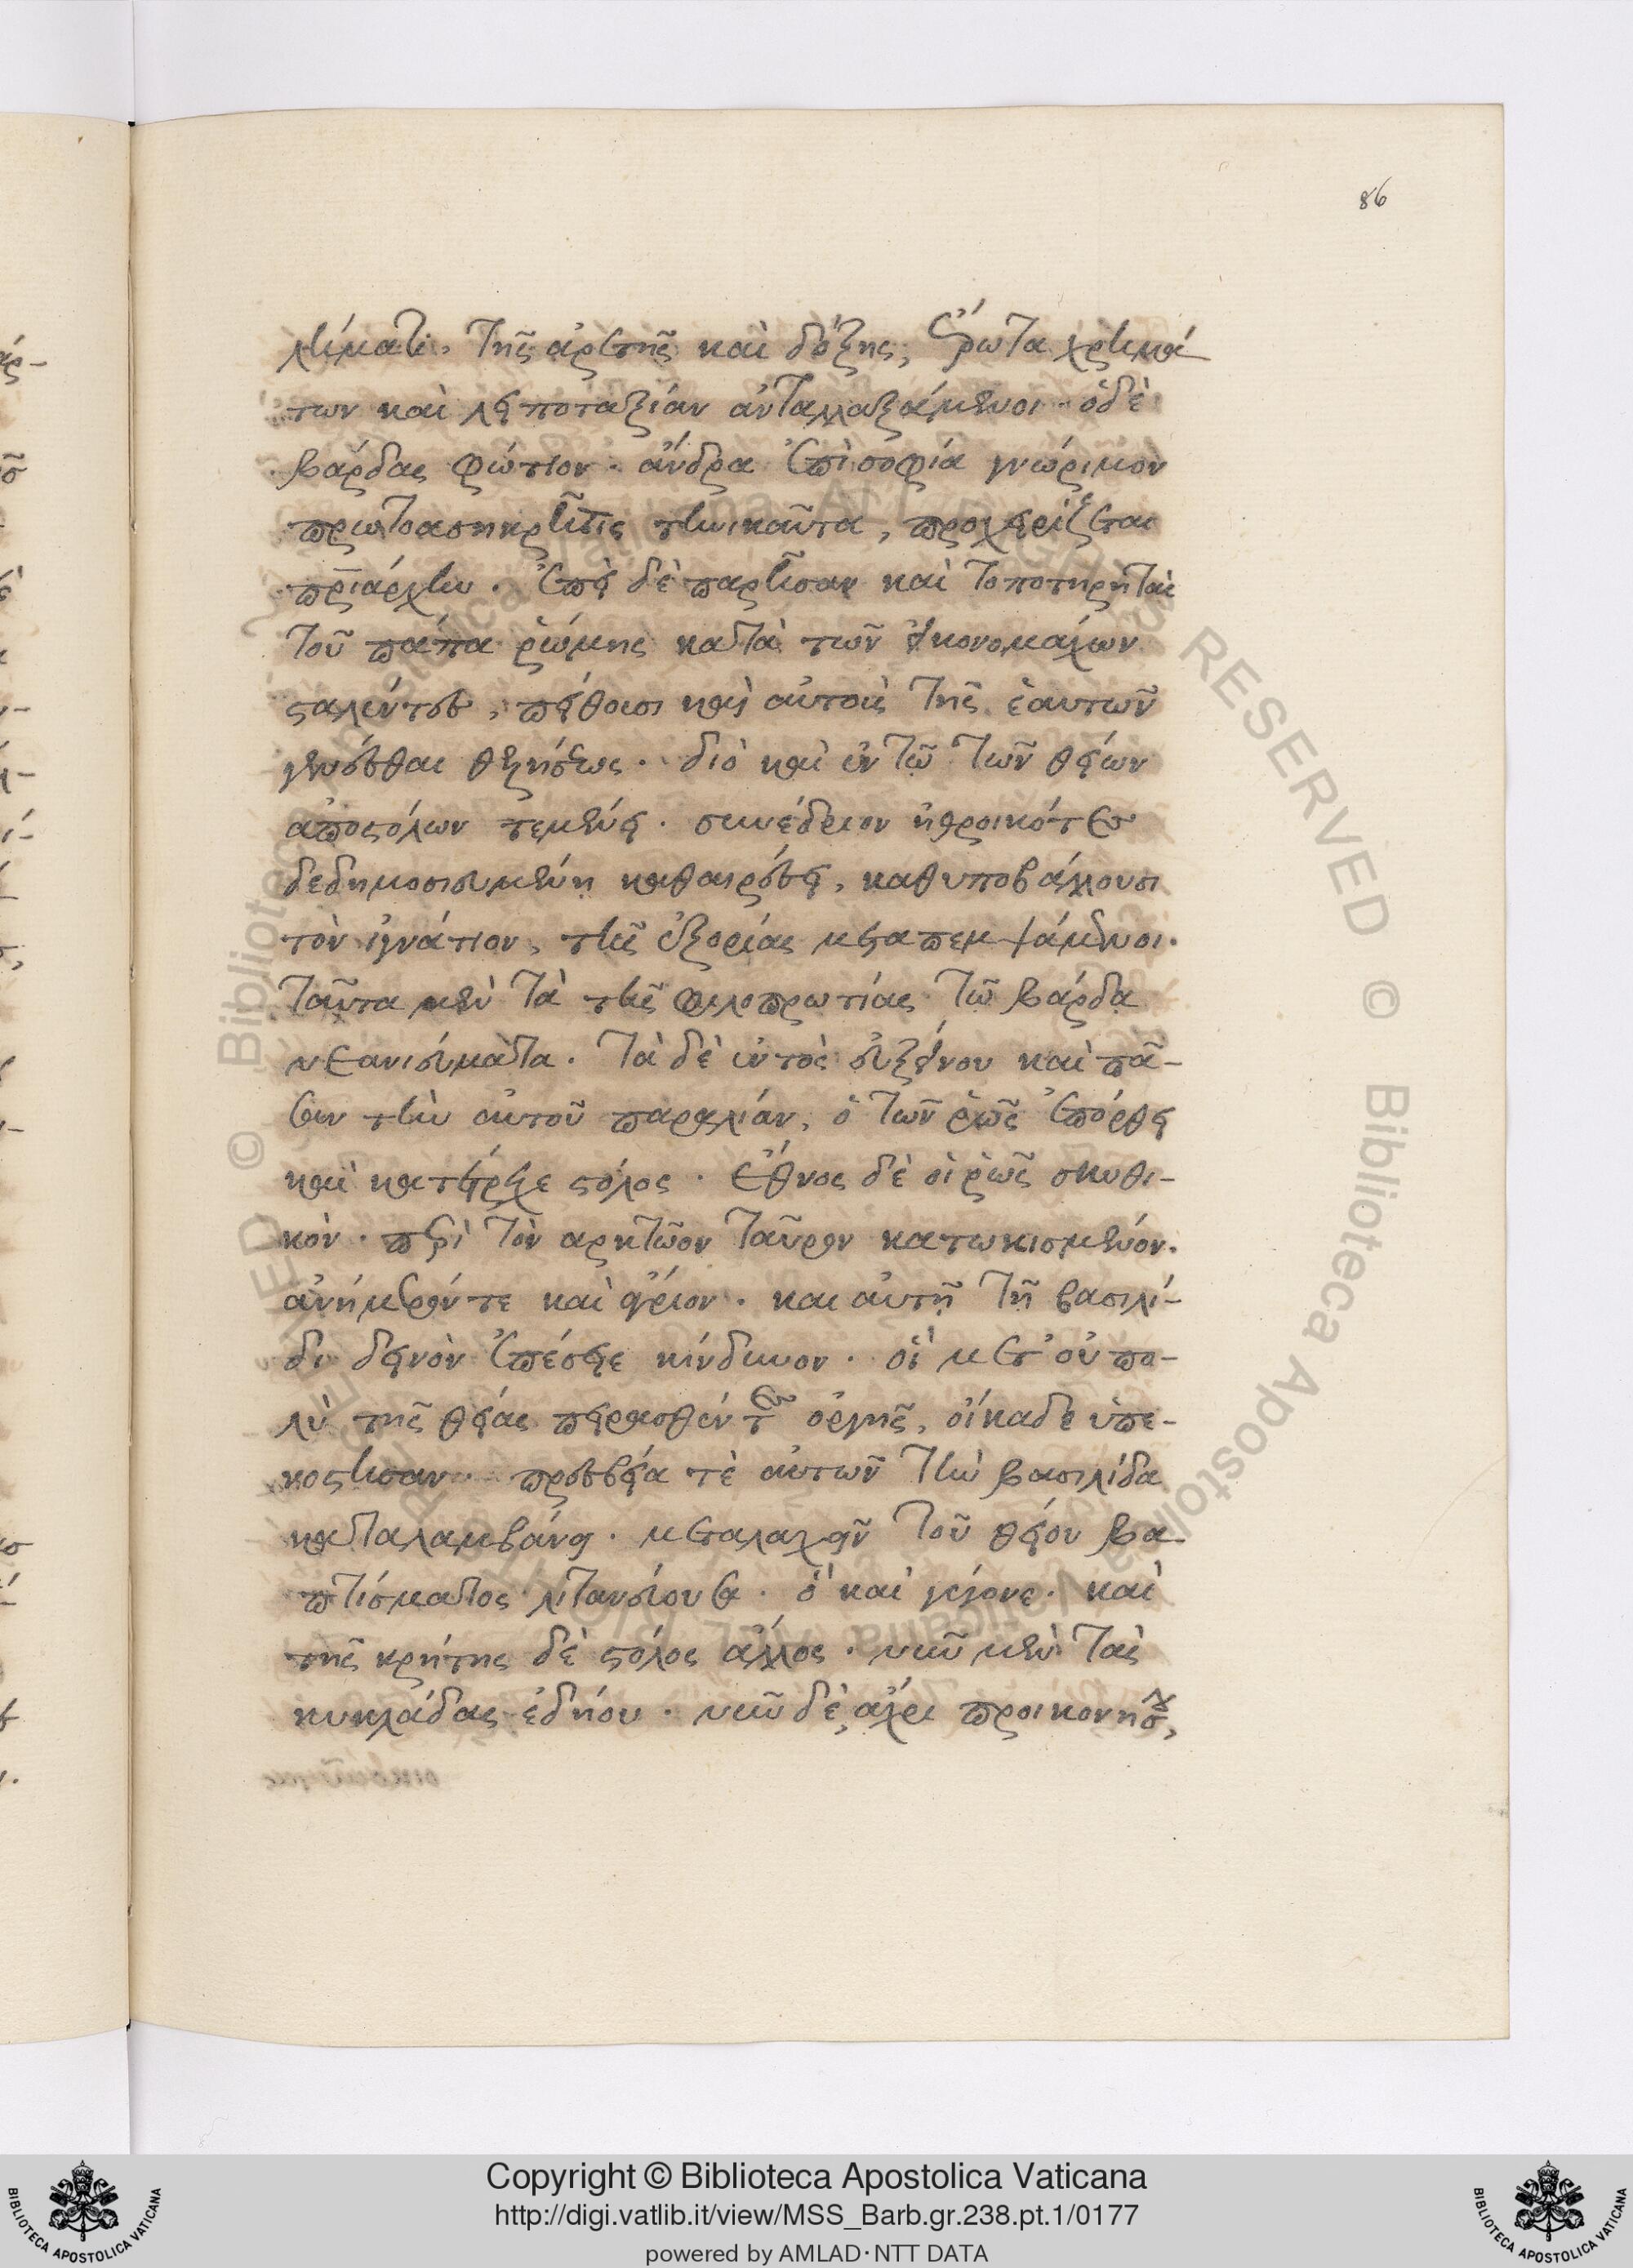 86
λήματι. τῆς ἀρετῆς καὶ δόξης, ἔρωτα χρημά
των καὶ λειποταξίαν ἀνταλλαξάμενοι. ὁ δὲ
βάρδας φώτιον. ἄνδρα ἐπὶ σοφία γνώριμον
πρωτοασηκρῆτις τηνικαῦτα, προχειρίζεται
πριάρχην. ἐπεὶ δὲ παρῆσαν καὶ τοποτηρηταὶ
τοῦ πάπα ῥώμης κατὰ τῶν εἰκονομάχων
σταλέντες, πείθουσι καὶ αὐτοὺς τῆς ἑαυτῶν
γενέσθαι θελήσεως. διὸ καὶ ἐν τῶ τῶν θείων
ἀποστόλων τεμένει. συνέδριον ἠθροικότες
δεδημοσιευμένη καθαιρέσει, καθυποβάλλουσι
τὸν ἰγνάτιον, τῆς ἐξορίας μεταπεμψάμενοι.
ταῦτα μὲν τὰ τῆς φιλοπρωτίας τῶ βάρδα
νεανιεύματα. τὰ δὲ ἐντὸς εὐξείνου καὶ πᾶ-
σαν τὴν αὐτοῦ παραλίαν, ὁ τῶν ῥῶς ἐπόρθει
καὶ κατέτρεχε στόλος. ἔθνος δὲ οἱ ῥῶς σκυθι-
κὸν. περὶ τὸν ἀρκτῶον ταῦρον κατωκισμένον.
ἀνήμερόν τε καὶ ἄγριον. και αὐτῆ τῆ βασιλί-
δι δεινὸν ἐπέσειε κίνδυνον. οἳ μετ' οὐ πο-
λὺ τῆς θείας πειραθέντες ὀργῆς, οἴκαδε ὑπε-
νόστησαν πρεσβεία τὲ αὐτῶν τὴν βασιλίδα
καταλαμβάνει. μεταλαχεῖν τοῦ θείου βα
πτίσματος λιτανεύουσα. ὃ καὶ γέγονε. καὶ
τῆς κρήτης δὲ στόλος ἄλλος. νῦν μὲν τὰς
κυκλάδας ἐδήου. νῦν δὲ, ἄχρι προικονήσου,
Copyright © Biblioteca Apostolica Vaticana
http://digi.vatlib.it/view/MSS_Barb.gr.238.pt.1/0177
powered by AMLAD·NTT DATA